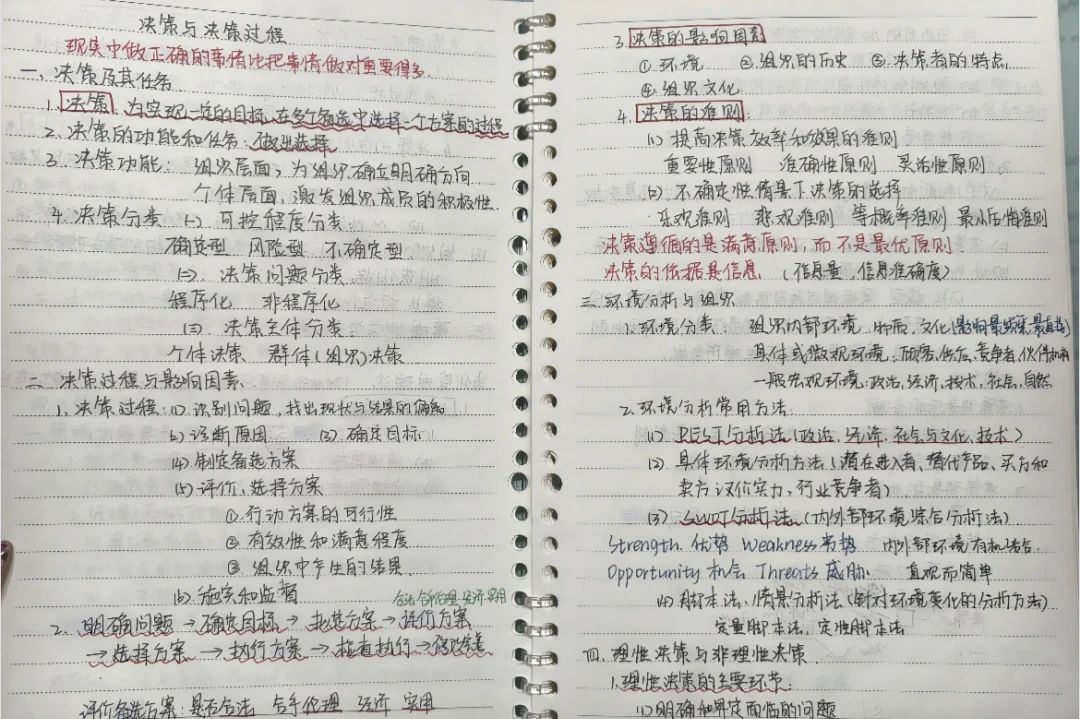 决策与决策过程
现实中做正确的事情比把事情做对重要得多.
一、决策及其任务
1. 决策 为实现一定的目标,在多个备选中选择一个方案的过程
2. 决策的功能和任务:做出选择
3. 决策功能: 组织层面,为组织确立明确方向
个体层面,激发组织成员的积极性
4. 决策分类 (一) 可控程度分类
确定型 风险型 不确定型
(二) 决策问题分类
程序化 非程序化
(三) 决策主体分类
个体决策 群体(组织)决策
二、决策过程与影响因素
1. 决策过程:(1) 识别问题,找出现状与结果的偏离
(2) 诊断原因 (3) 确定目标
(4) 制定备选方案
(5) 评价、选择方案
① 行动方案的可行性
② 有效性和满意程度
③ 组织中产生的结果
(6) 施实和监督
合法 合伦理 经济 实用
2. 明确问题→确定目标→拟选方案→评价方案
→选择方案→执行方案→检查执行→
评价备选方案:是否合法 合乎伦理 经济 实用
3. 决策的影响因素
① 环境 ② 组织的历史 ③ 决策者的特点
④ 组织文化
4. 决策的准则
(1) 提高决策效率和效果的准则
重要性原则 准确性原则 灵活性原则
(2) 不确定性情景下决策的选择
乐观准则 悲观准则 等概率准则 最小后悔准则
决策遵循的是满意原则,而不是最优原则
决策的依据是信息 (信息量 信息准确度)
三、环境分析与组织
1. 环境分类: 组织内部环境 物质、文化(影响最
具体或微观环境:顾客、供应、竞争者、伙伴
一般宏观环境:政治,经济,技术,社会,自然
2. 环境分析常用方法:
(1) PEST分析法(政治、经济、社会与文化、技术)
(2) 具体环境分析方法(潜在进入者、替代产品、买方和
卖方议价实力、行业竞争者)
(3) SWOT分析法(内外部环境综合分析法)
Strength 优势 Weakness 劣势 内外部环境有机结合
Opportunity 机会 Threats 威胁 直观而简单
(4) 脚本法、情景分析法(针对环境变化的分析方法)
定量脚本法,定性脚本法
四、理性决策与非理性决策
1. 理性决策的主要环节:
(1) 明确和界定面临的问题